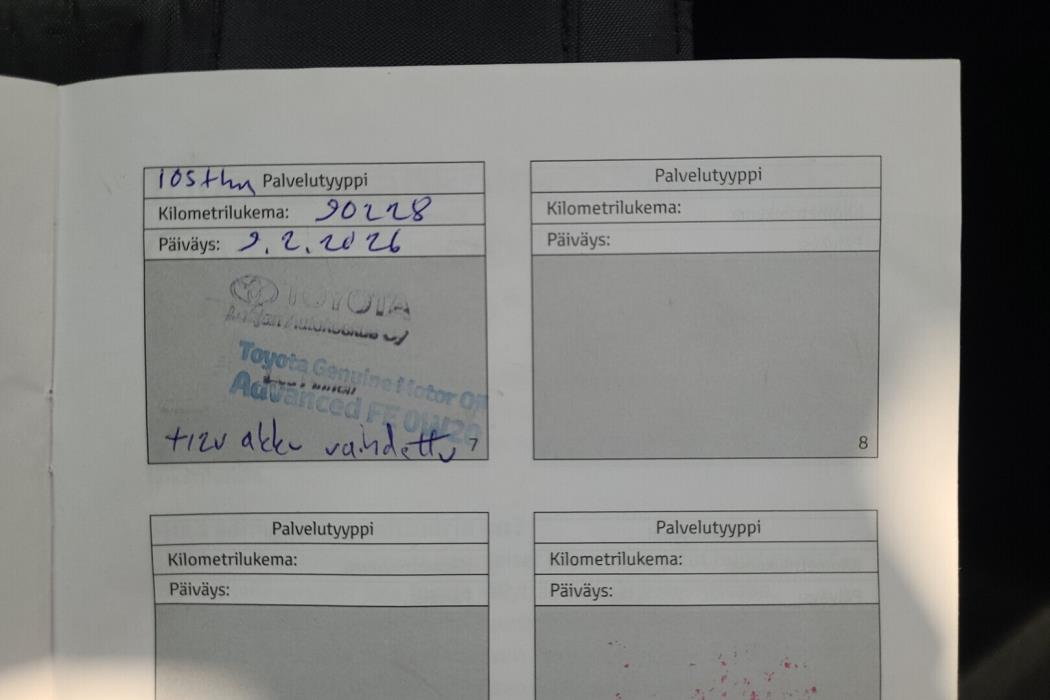 105 thm Palvelutyyppi
Kilometrilukema: 90228
Päiväys: 9.2.2026
TOYOTA
Toyota Genuine Motor Oil
Advanced FE 0W20
+12V akku vaihdettu 7
Palvelutyyppi
Kilometrilukema:
Päiväys:
8
Palvelutyyppi
Kilometrilukema:
Päiväys:
Palvelutyyppi
Kilometrilukema:
Päiväys: